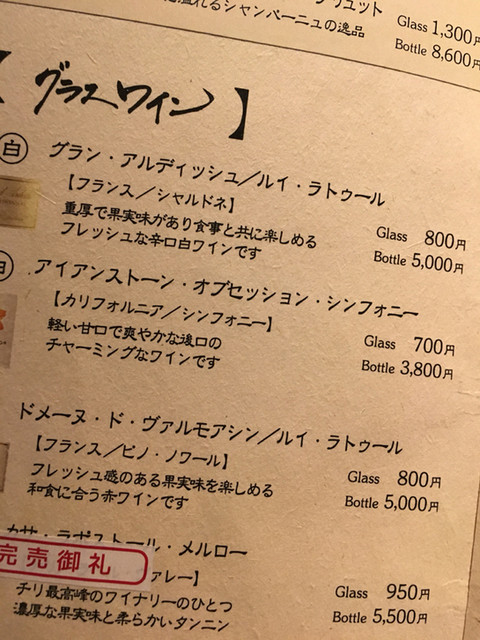 リュット
溢れるシャンパーニュの逸品
Glass 1,300円
Bottle 8,600円
【グラスワイン】
白
グラン・アルディッシュ／ルイ・ラトゥール
【フランス／シャルドネ】
重厚で果実味があり食事と共に楽しめる
フレッシュな辛口白ワインです
Glass 800円
Bottle 5,000円
白
アイアンストーン・オブセッション・シンフォニー
【カリフォルニア／シンフォニー】
軽い甘口で爽やかな後口の
チャーミングなワインです
Glass 700円
Bottle 3,800円
ドメーヌ・ド・ヴァルモアシン／ルイ・ラトゥール
【フランス／ピノ・ノワール】
フレッシュ感のある果実味を楽しめる
和食に合う赤ワインです
Glass 800円
Bottle 5,000円
カサ・ラポストール・メルロー
完売御礼
ァレー】
チリ最高峰のワイナリーのひとつ
濃厚な果実味と柔らかいタンニン
Glass 950円
Bottle 5,500円